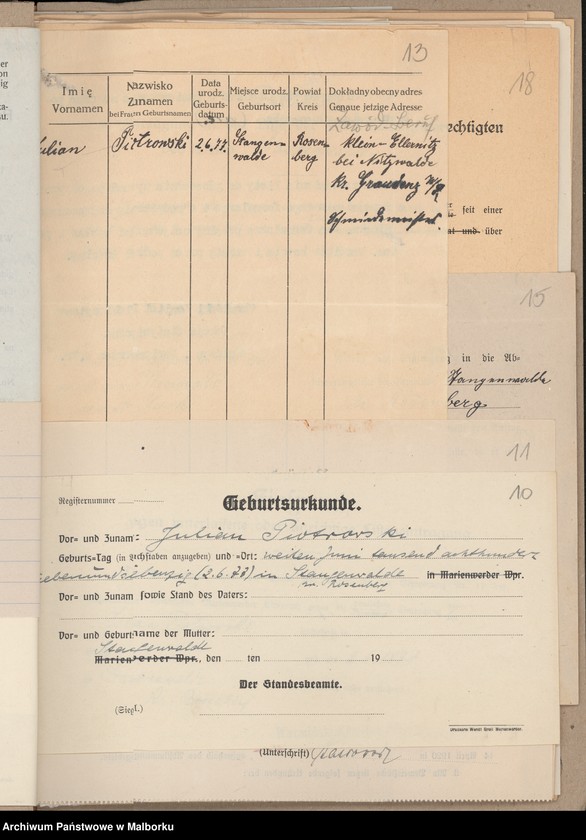 13
Imię
Vornamen
Nazwisko
Zunamen
bei Frauen Geburtsnamen
Data
urodz.
Geburts-
datum
Miejsce urodz.
Geburtsort
Powiat
Kreis
Dokładny obecny adres
Genaue jetzige Adresse
Zawód-Beruf
Julian
Piotrowski
2.6.77.
Stangen-
walde
Rosen-
berg
Klein-Ellernitz
bei Nitzwalde
Kr. Graudenz W/P
Schmiedemeister.
18
echtigten
seit einer
at und über
15
in die Ab-
Stangenwalde
berg
11
10
Registernummer
Geburtsurkunde.
Vor= und Zunam: Julian Piotrowski
Geburts=Tag (in Buchstaben anzugeben) und =Ort: zweiten Juni tausend achthundert
siebenundsiebenzig (2.6.77) in Stangenwalde in Marienwerder Wpr.
Rosenberg
Vor= und Zunam sowie Stand des Vaters:
Vor= und Geburtsname der Mutter:
Stangenwalde
Marienwerder Wpr., den ten 19
Der Standesbeamte.
(Siegl.)
(Unterschrift)
Archiwum Państwowe w Malborku